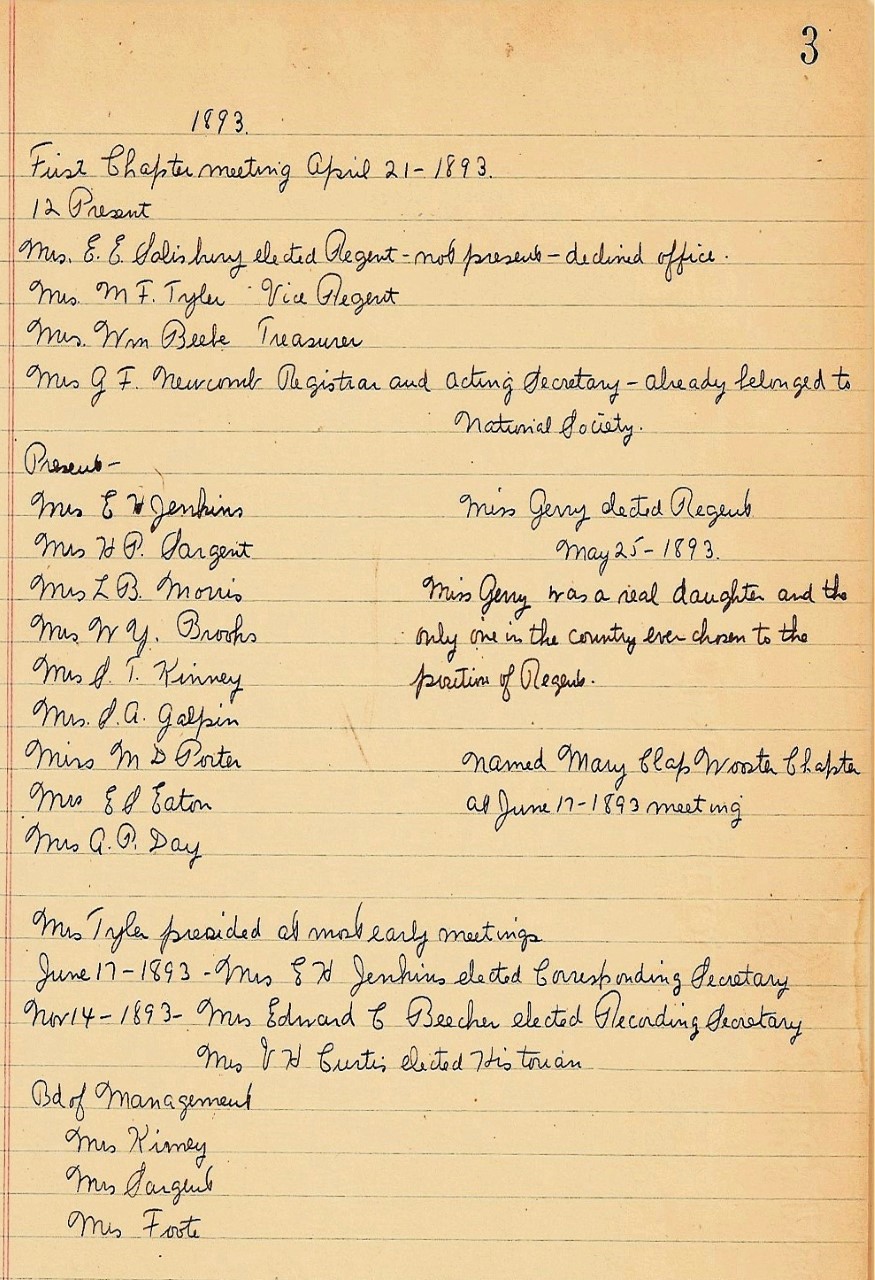 3
1893.
First Chapter meeting April 21-1893.
12 Present
Mrs. E. E. Salisbury elected Regent - not present - declined office.
Mrs. M F. Tyler Vice Regent
Mrs. Wm Beebe Treasurer
Mrs G F. Newcomb Registrar and acting Secretary - already belonged to
National Society.
Present-
Mrs E H Jenkins
Mrs H P. Sargent
Mrs L B. Morris
Mrs W Y. Brooks
Mrs S T. Kinney
Mrs. S. A. Galpin
Miss M D Porter
Mrs E S Eaton
Mrs A. P. Day
Miss Gerry elected Regent
May 25-1893.
Miss Gerry was a real daughter and the
only one in the country ever chosen to the
position of Regent.
Named Mary Clap Wooster Chapter
at June 17-1893 meeting
Mrs Tyler presided at most early meetings
June 17-1893 - Mrs E H Jenkins elected Corresponding Secretary
Nov 14-1893- Mrs Edward C Beecher elected Recording Secretary
Mrs V H Curtis elected Historian
Bd of Management
Mrs Kinney
Mrs Sargent
Mrs Foote